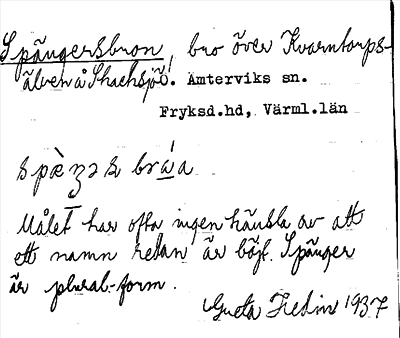 Spångersbron, bro över Kvarntorps-
älven å Skacksjö. Ämterviks sn.
Fryksd.hd, Värml.län
Målet har ofta ingen känsla av att
ett namn redan är böjt. Spånger
är plural-form.
Greta Hedin 1937